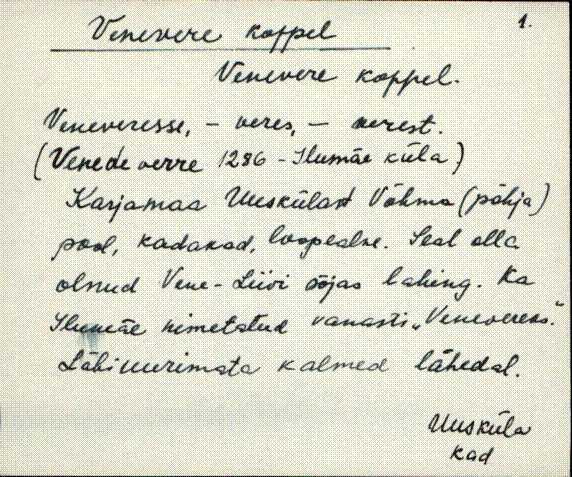 1.
Venevere koppel
Venevere koppel.
Veneveresse, - veres, - verest.
(Venede verre 1286 - Ilumäe küla)
Karjamaa Uuskülast Võhma (põhja)
pool, kadakad, loopealne. Seal olla
olnud Vene-Liivi sõjas lahing. Ka
Ilumäe nimetatud vanasti „Venevereks".
Läbiuurimata kalmed lähedal.
Uusküla
kad